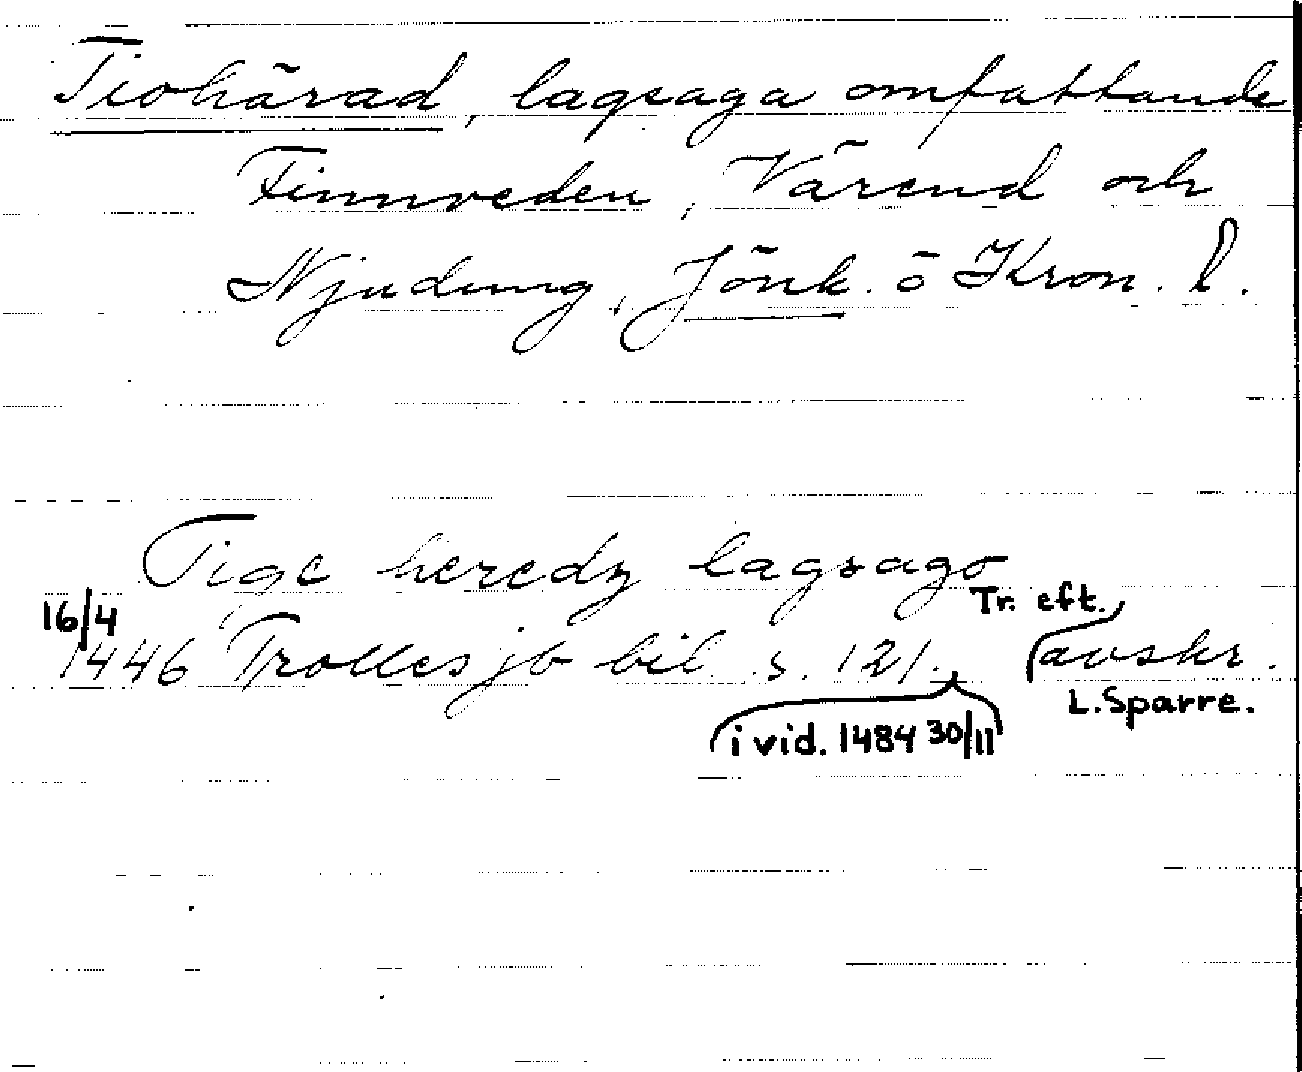 Tiohärad, lagsaga omfattande
Finnveden, Värend och
Njudung, Jönk. o Kron. l.
Tige heredz lagsago
16/4 1446 Trolles jb bil. s. 121. Tr. eft. avskr.
L. Sparre.
i vid. 1484 30/11